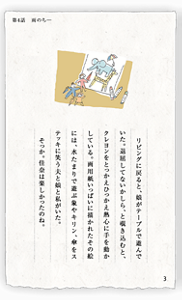 第6話 雨のち一
リビングに戻ると、娘がテーブルで遊んで
いた。退屈してないかしら、と覗き込むと、
クレヨンをとっかえひっかえ熱心に手を動か
している。画用紙いっぱいに描かれたその絵
には、水たまりで遊ぶ象やキリン、傘をス
テッキに笑う夫と娘と私がいた。
そっか。佳奈は楽しかったのね。
3